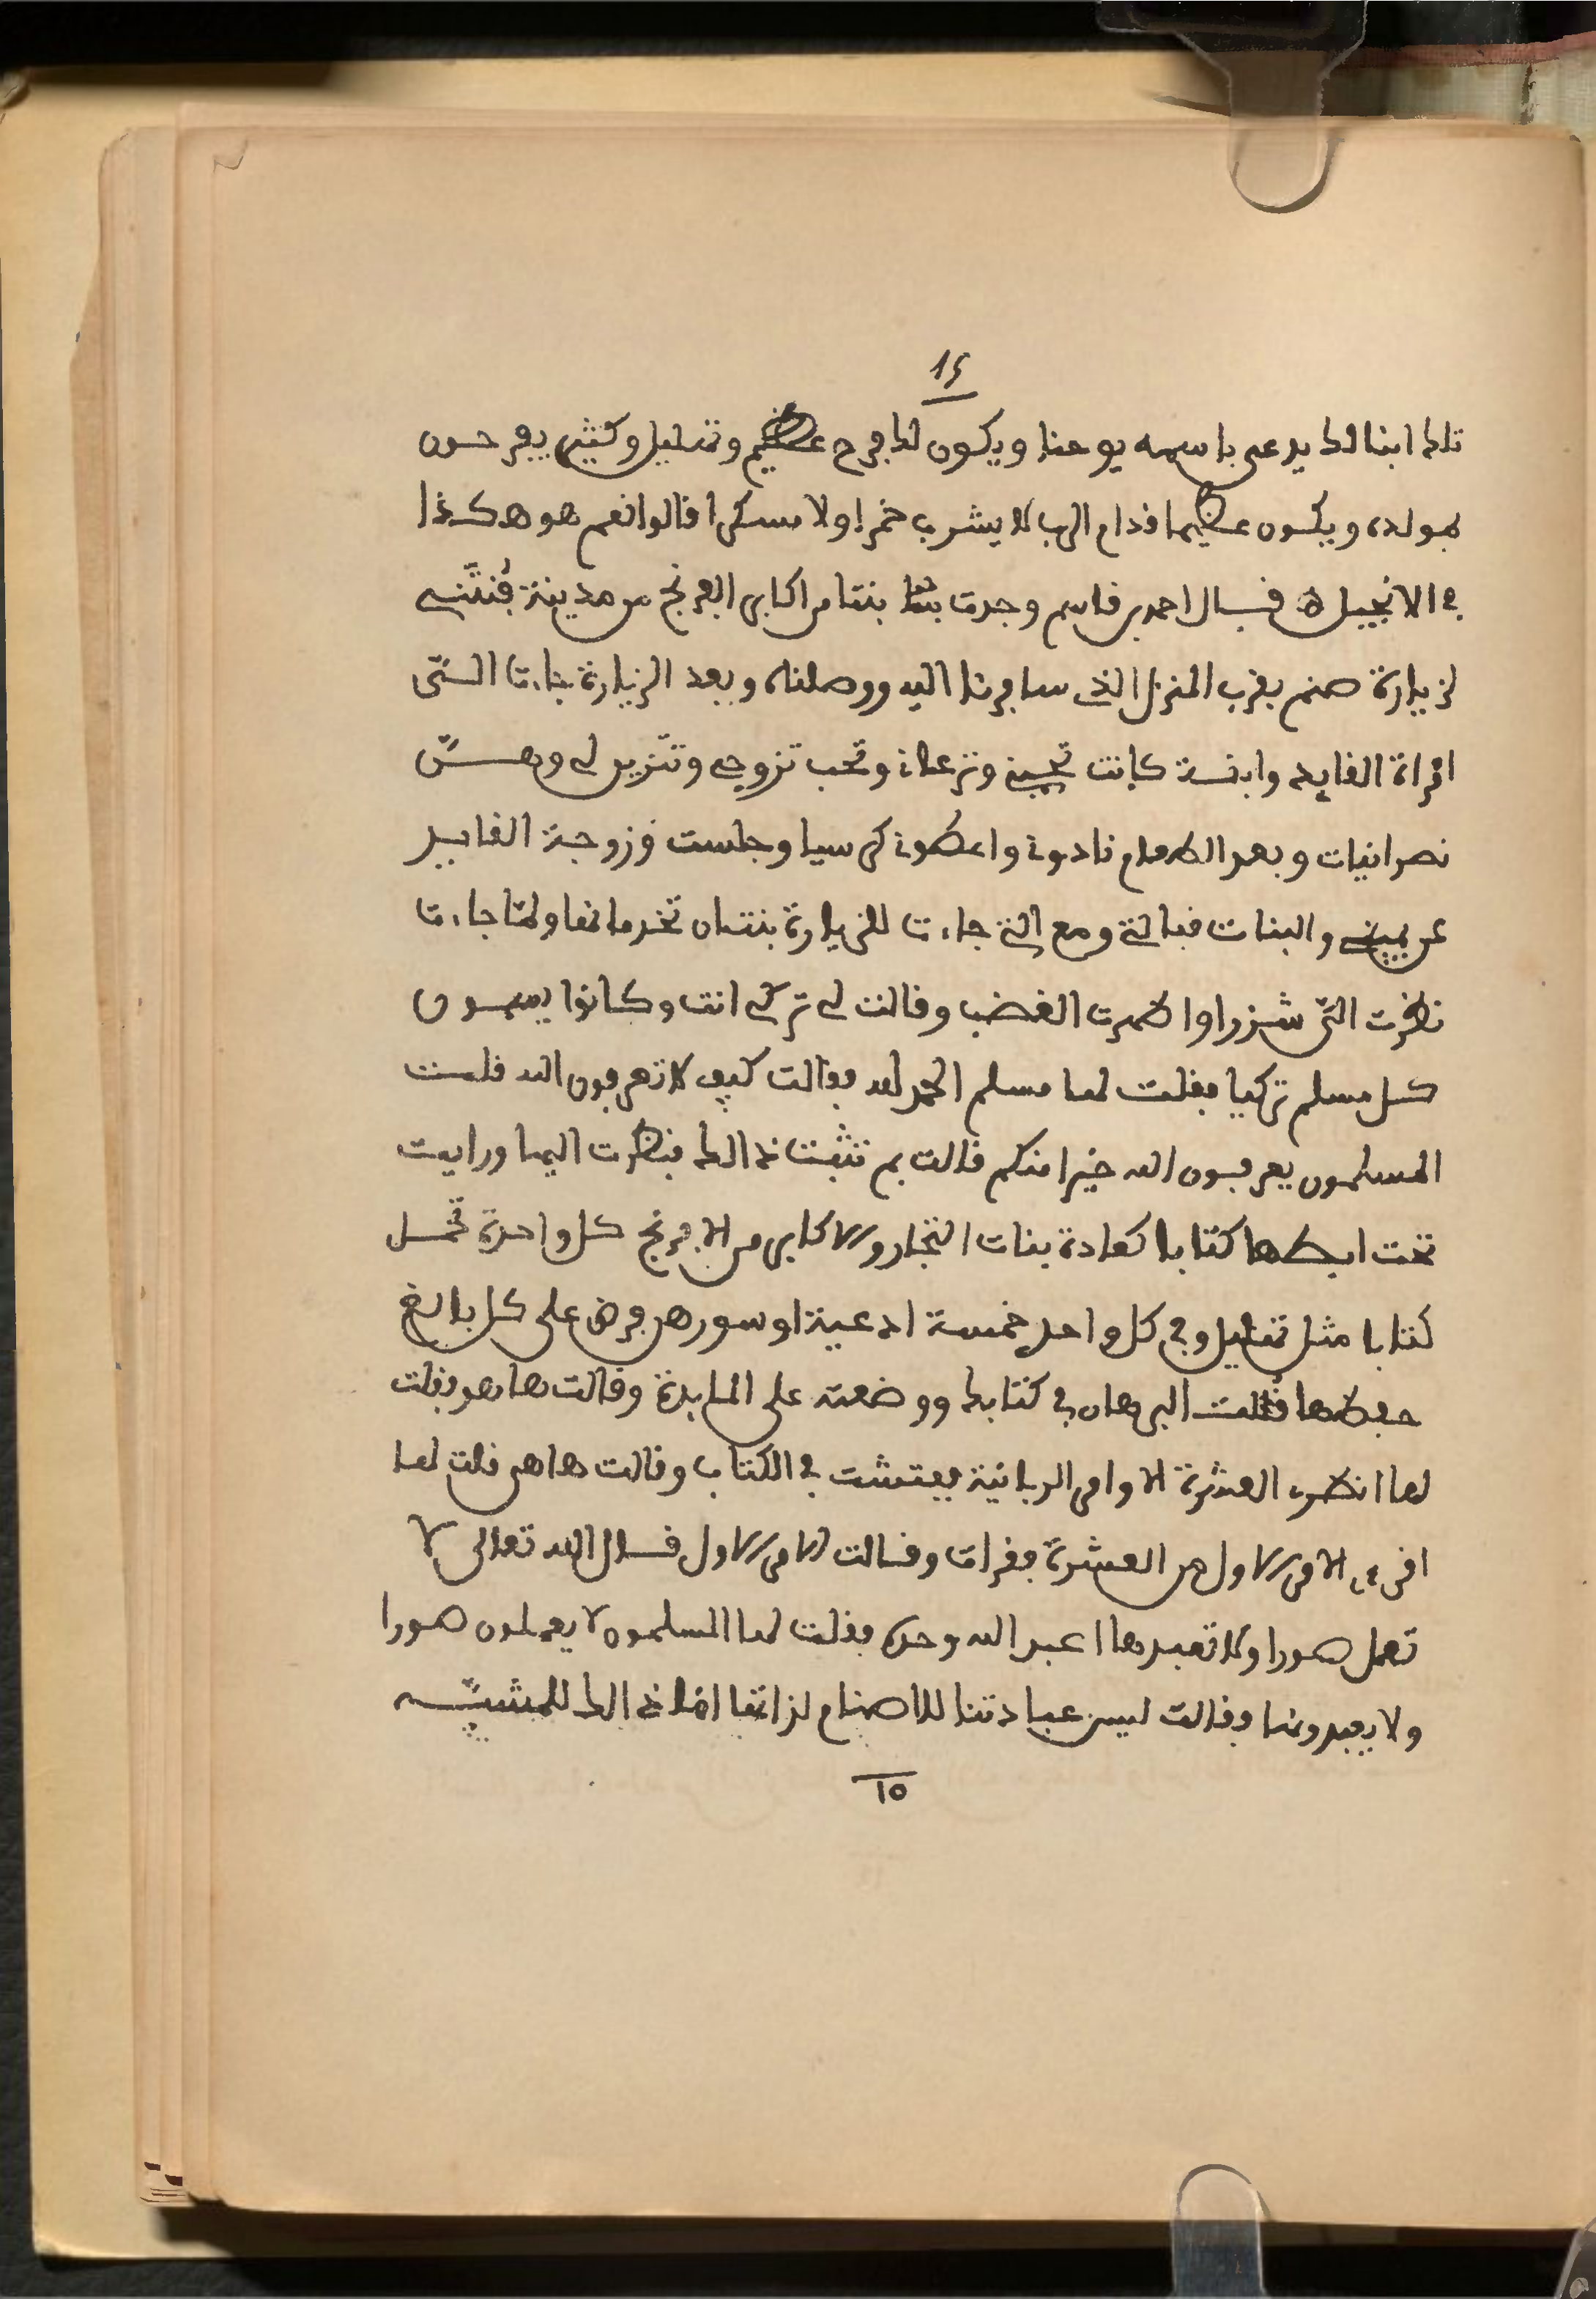 15
تلد ابنا لك يدعى باسمه يوحنا ويكون لك فرح عظيم وتهليل وكثير يفرحون
بمولده ويكون عظيما قدام الرب لا يشرب خمرا ولا مسكرا قالوا نعم هو هكذا
في الانجيل قال احمد بن قاسم وجدت بنتا من اكابر الفرنج من مدينة فنتنى
لزيارة صنم بقرب المنزل الذي سافرنا اليه ووصلناه وبعد الزيارة جاءت الستى
امراة القايد وابنته كانت تحبني وتحب تزوجي وتتزين لي وهن
نصرانيات وبعد الطعام نادوني واعطوني كرسيا وجلست وزوجة القايد
عن يميني والبنات قبالتي ومع التي جاءت للزيارة بنتان تخدمانها ولما جاءت
نظرت التي شزرا واظهرت الغضب وقالت لي تركي انت وكانوا يسمون
كل مسلم تركيا فقلت لها مسلم الحمد لله فقالت كيف لا تعرفون الله قلت
المسلمون يعرفون الله خيرا منكم قالت بم تثبت ذالك فنظرت اليها ورايت
تحت ابطها كتابا كعادة بنات التجار والاكابر من الافرنج كل واحدة تحمل
كتابا مثل وفي كل واحد خمسة ادعية او سور هن فرض على كل بالغ
حفظها قلت البرهان في كتابك ووضعته على المايدة وقالت ها هو فقلت
لها انظرى العشرة الاوامر الربانية ففتشت في الكتاب وقالت ها هى قلت لها
اقرءى الامر الاول من العشرة فقرات وقالت الامر الاول قال الله تعالى لا
تعمل صورا ولا تعبدها اعبد الله وحده فقلت لها المسلمون لا يعملون صورا
ولا يعبدونها وقالت ليس عبادتنا للاصنام لذاتها انما ذالك للمشبه
10